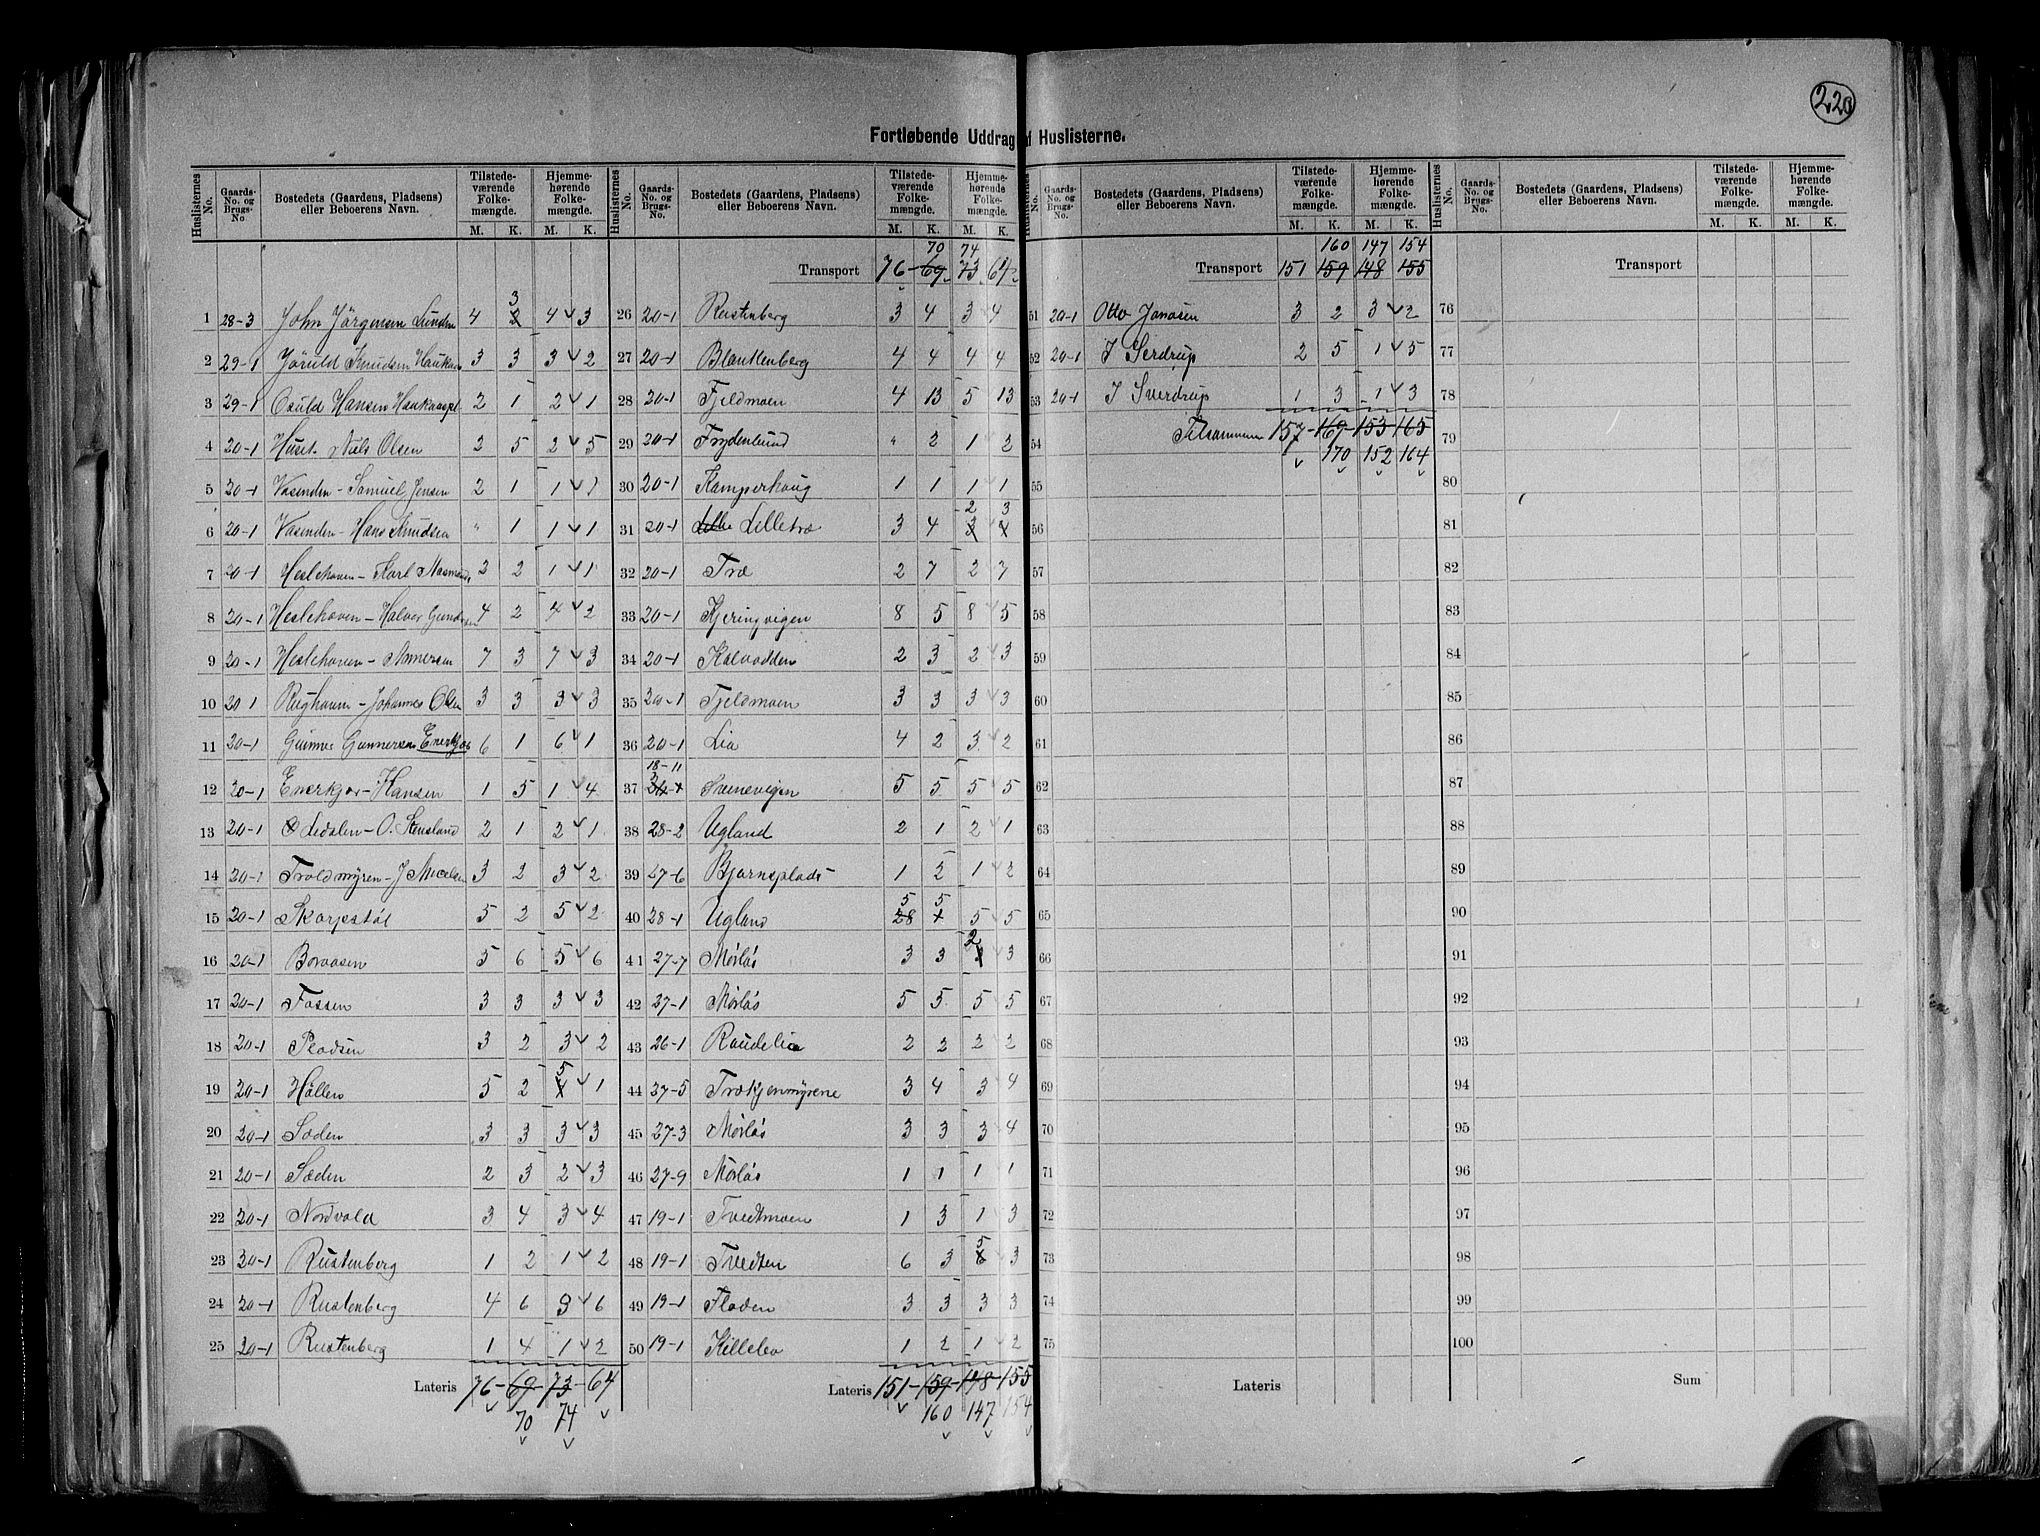 220
Fortløbende Uddrag af Huslisterne.
Huslisternes No. Gaards-No. og Brugs-No Bostedets (Gaardens, Pladsens) eller Beboerens Navn. Tilstedeværende Folkemængde. M. K. Hjemmehørende Folkemængde. M. K.
1 28-3 John Jörgensen Lunden 4 2 3 4 3
2 29-1 Jöruld Knudsen 3 3 3 2
3 29-1 Osuld Hansen 2 1 2 1
4 20-1 Huset. Niels Olsen 2 5 2 5
5 20-1 Vasenden - Samuel Jensen 2 1 1 1
6 20-1 Vasenden - Hans Knudsen " 1 1 1
7 20-1 Heslehaven - Karl 2 2 1 1
8 20-1 Heslehaven - Halvor Gundersen 4 2 4 2
9 20-1 Heslehaven - 7 3 7 3
10 20 1 Rughaven - Johannes Olsen 3 3 3 3
11 20-1 Gunner Gunnersen Enerkjær 6 1 6 1
12 20-1 Enerkjær - Hansen 1 5 1 4
13 20-1 Ledalen - O. Stensland 2 1 2 1
14 20-1 Troldmyren - J 3 2 3 2
15 20-1 Skorpestøl 5 2 5 2
16 20-1 Boraasen 5 6 5 6
17 20-1 Fossen 3 3 3 3
18 20-1 Pladsen 3 2 3 2
19 20-1 Höllen 5 2 4 5 1
20 20-1 Soden 3 3 3 3
21 20-1 Sæden 2 3 2 3
22 20-1 Nordvold 3 4 3 4
23 20-1 Rustenberg 1 2 1 2
24 20-1 Rustenberg 4 6 3 6
25 20-1 Rustenberg 1 4 1 2
Lateris 76 - 69 - 73 - 64
70 74
Transport 76 - 69 70 73 74 64
26 20-1 Rustenberg 3 4 3 4
27 20-1 Blankenberg 4 4 4 4
28 20-1 Fjeldmoen 4 13 5 13
29 20-1 Frydenlund " 2 1 2
30 20-1 Kamperhaug 1 1 1 1
31 20-1 Lille Lilletræ 3 4 3 2 4 3
32 20-1 Træ 2 7 2 7
33 20-1 Kjeringvigen 8 5 8 5
34 20-1 Kalvodden 2 3 2 3
35 20-1 Fjeldmoen 3 3 3 3
36 20-1 Lia 4 2 3 2
37 18-11 Svenevigen 5 5 5 5
38 28-2 Ugland 2 1 2 1
39 27-6 Bjørnsplads 1 2 1 2
40 28-1 Ugland 28 5 5 5 5
41 27-7 Mørlös 3 3 2 3
42 27-1 Mørlös 5 5 5 5
43 26-1 Raudelia 2 2 2 2
44 27-5 Trækjenmyrene 3 4 3 4
45 27-3 Mørlös 3 3 3 4
46 27-9 Mørlös 1 1 1 1
47 19-1 Tvedtmoen 1 3 1 3
48 19-1 Tvedten 6 3 6 5 3
49 19-1 Floden 3 3 3 3
50 19-1 Killelia 1 2 1 2
Lateris 151 - 159 - 148 - 155
160 147 154
Huslisternes No. Gaards-No. og Brugs-No. Bostedets (Gaardens, Pladsens) eller Beboerens Navn. Tilstedeværende Folkemængde. M. K. Hjemmehørende Folkemængde. M. K.
160 147 154
Transport 151 159 148 155
51 20-1 Otto Janosen 3 2 3 2
52 20-1 I Serdrup 2 5 1 5
53 20-1 I Sverdrup 1 3 1 3
54 Tilsammen 157 - 169 - 153 - 165
170 152 164
55
56
57
58
59
60
61
62
63
64
65
66
67
68
69
70
71
72
73
74
75
Lateris
Transport
76
77
78
79
80
81
82
83
84
85
86
87
88
89
90
91
92
93
94
95
96
97
98
99
100
Sum